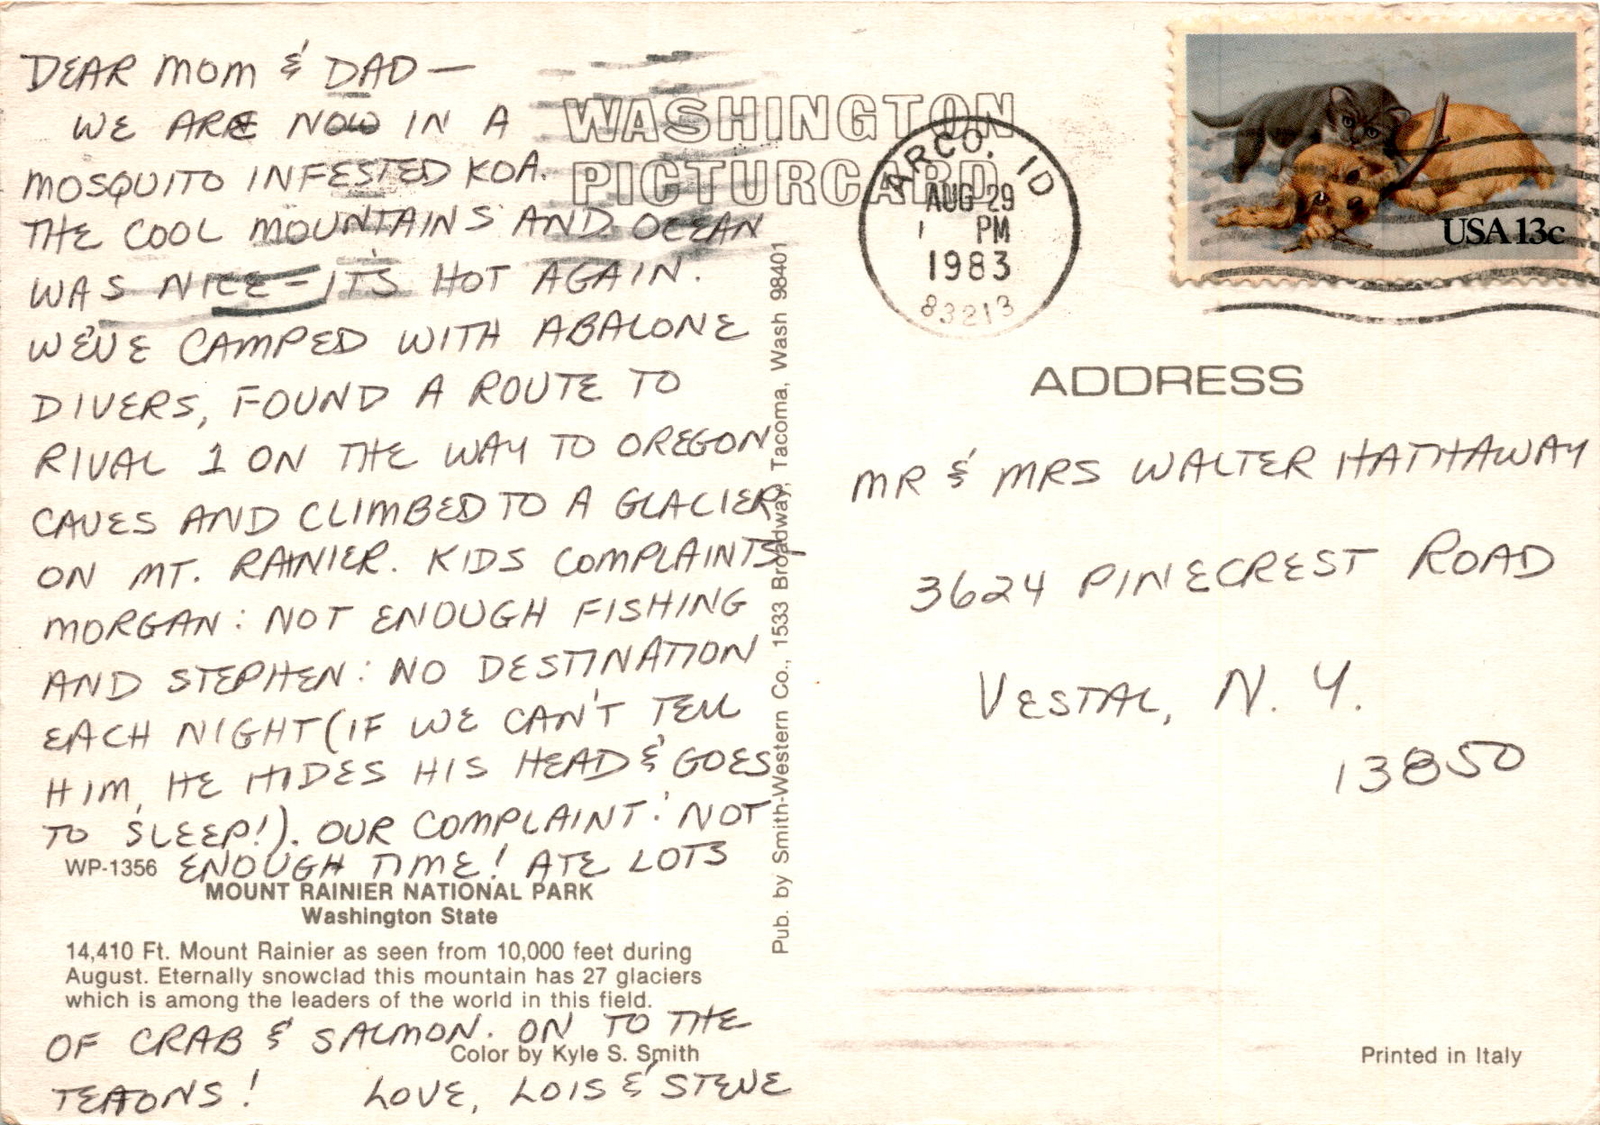 DEAR MOM & DAD —
WE ARE NOW IN A
MOSQUITO INFESTED KOA.
THE COOL MOUNTAINS AND OCEAN
WAS NICE – IT'S HOT AGAIN.
WE'VE CAMPED WITH ABALONE
DIVERS, FOUND A ROUTE TO
RIVAL 1 ON THE WAY TO OREGON
CAVES AND CLIMBED TO A GLACIER
ON MT. RAINIER. KIDS COMPLAINTS –
MORGAN: NOT ENOUGH FISHING
AND STEPHEN: NO DESTINATION
EACH NIGHT (IF WE CAN'T TELL
HIM, HE HIDES HIS HEAD & GOES
TO SLEEP!). OUR COMPLAINT: NOT
ENOUGH TIME! ATE LOTS
OF CRAB & SALMON. ON TO THE
TEAONS!   LOVE, LOIS & STEVE
WP-1356
MOUNT RAINIER NATIONAL PARK
Washington State
14,410 Ft. Mount Rainier as seen from 10,000 feet during
August. Eternally snowclad this mountain has 27 glaciers
which is among the leaders of the world in this field.
Color by Kyle S. Smith
WASHINGTON
PICTURCARD
Pub. by Smith-Western Co., 1533 Broadway, Tacoma, Wash 98401
ARCO, ID
AUG 29
1 PM
1983
83213
USA 13c
ADDRESS
MR & MRS WALTER HATHAWAY
3624 PINECREST ROAD
VESTAL, N. Y.
13850
Printed in Italy